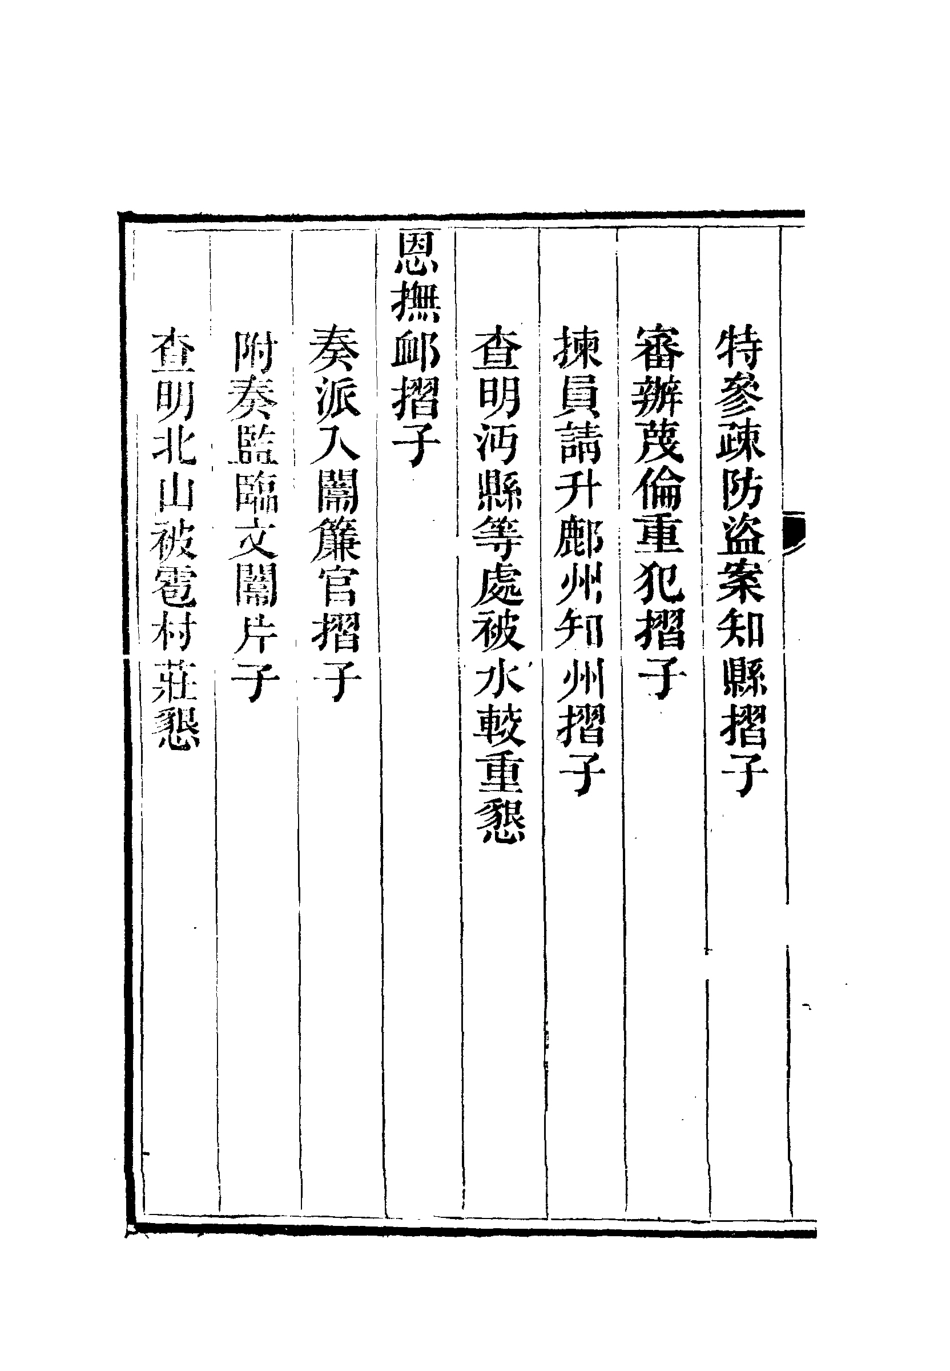 特參疎防盜案知縣摺子
審辦蔑倫重犯摺子
揀員請升鄜州知州摺子
查明沔縣等處被水較重懇
恩撫衈摺子
奏派入闈簾官摺子
附奏監臨文闈片子
查明北山被雹村莊懇